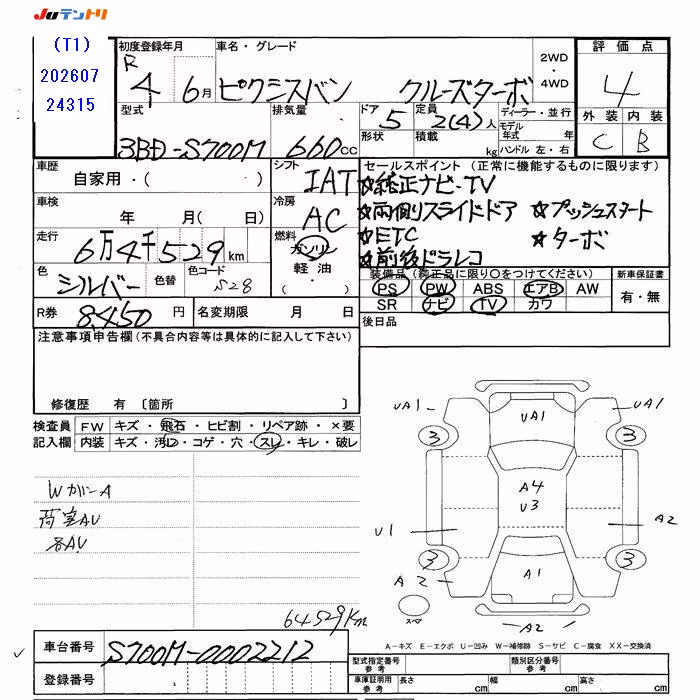 Juテントリ
(T1)
202607
24315
初度登録年月
R
4 6月
車名・グレード
ピクシスバン クルーズターボ
2WD
・
4WD
評価点
4
外装 内装
C B
型式
3BD-S700M
排気量
660cc
ドア
5
定員
2(4)人
形状
積載
kg
ディーラー・並行
モデル
年式 年
ハンドル 左・右
車歴
自家用・( )
シフト
IAT
車検
年 月( 日)
冷房
AC
走行
6万4千529km
燃料
ガソリン
軽油・
( )
色
シルバー
色替
色コード
S28
R券
8,450円
名変期限 月 日
セールスポイント(正常に機能するものに限ります)
☆純正ナビ・TV
☆両側スライドドア ☆プッシュスタート
☆ETC ☆ターボ
☆前後ドラレコ
装備品(純正品に限り○をつけてください)
PS PW ABS エアB AW
SR ナビ TV カワ
新車保証書
有・無
後日品
注意事項申告欄(不具合内容等は具体的に記入して下さい)
修復歴 有 〔箇所 〕
検査員
記入欄
FW キズ・飛石・ヒビ割・リペア跡・×要
内装 キズ・汚レ・コゲ・穴・スレ・キレ・破レ
Wカバー A
荷室AU
各AU
64529Km
UA1 UA1 UA1
3 3
A4
U3
U1 A2
3 3
A2 A1
スペア
A2
A-キズ E-エクボ U-凹み W-補修跡 S-サビ C-腐食 XX-交換済
車台番号 S700M-0002212
登録番号
型式指定番号
参考
類別区分番号
参考
車庫証明用
参考
長さ cm 幅 cm 高さ cm